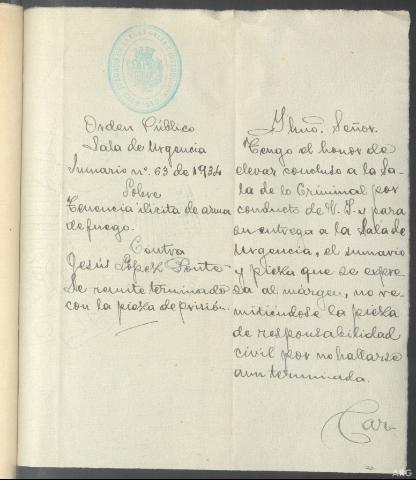 Orden Público
Sala de Urgencia
Sumario nº. 63 de 1934
Sobre
Tenencia ilícita de arma
de fuego.
Contra
Jesús López Fonte
Se remite terminado
con la pieza de prisión.
Ilmo. Señor.
Tengo el honor de
elevar concluso a la Sa-
la de lo Criminal por
conducto de V. I. y para
su entrega a la Sala de
Urgencia, el sumario
y pieza que se expre-
sa al márgen, no re-
mitiéndose la pieza
de responsabilidad
civil por no hallarse
aun terminada.
Car-
ARG